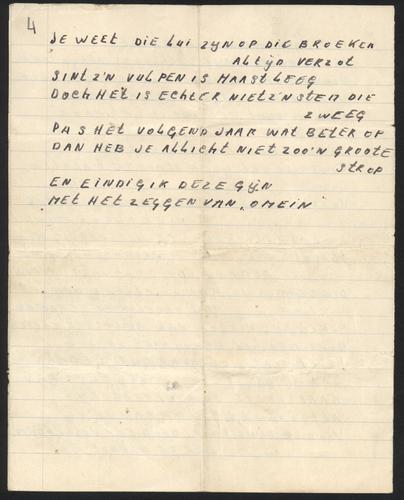 4
JE WEET DIE LUI ZYN OP DIE BROEKEN
ALTYD VERZOT
SINT Z'N VULPEN IS HAAST LEEG
DOCH HET IS ECHTER NIET Z'N STEM DIE
ZWEEG
PAS HET VOLGEND JAAR WAT BETER OP
DAN HEB JE ALLICHT NIET ZOO'N GROOTE
STROP
EN EINDIG IK DEZE GYN
MET HET ZEGGEN VAN „OMEIN"